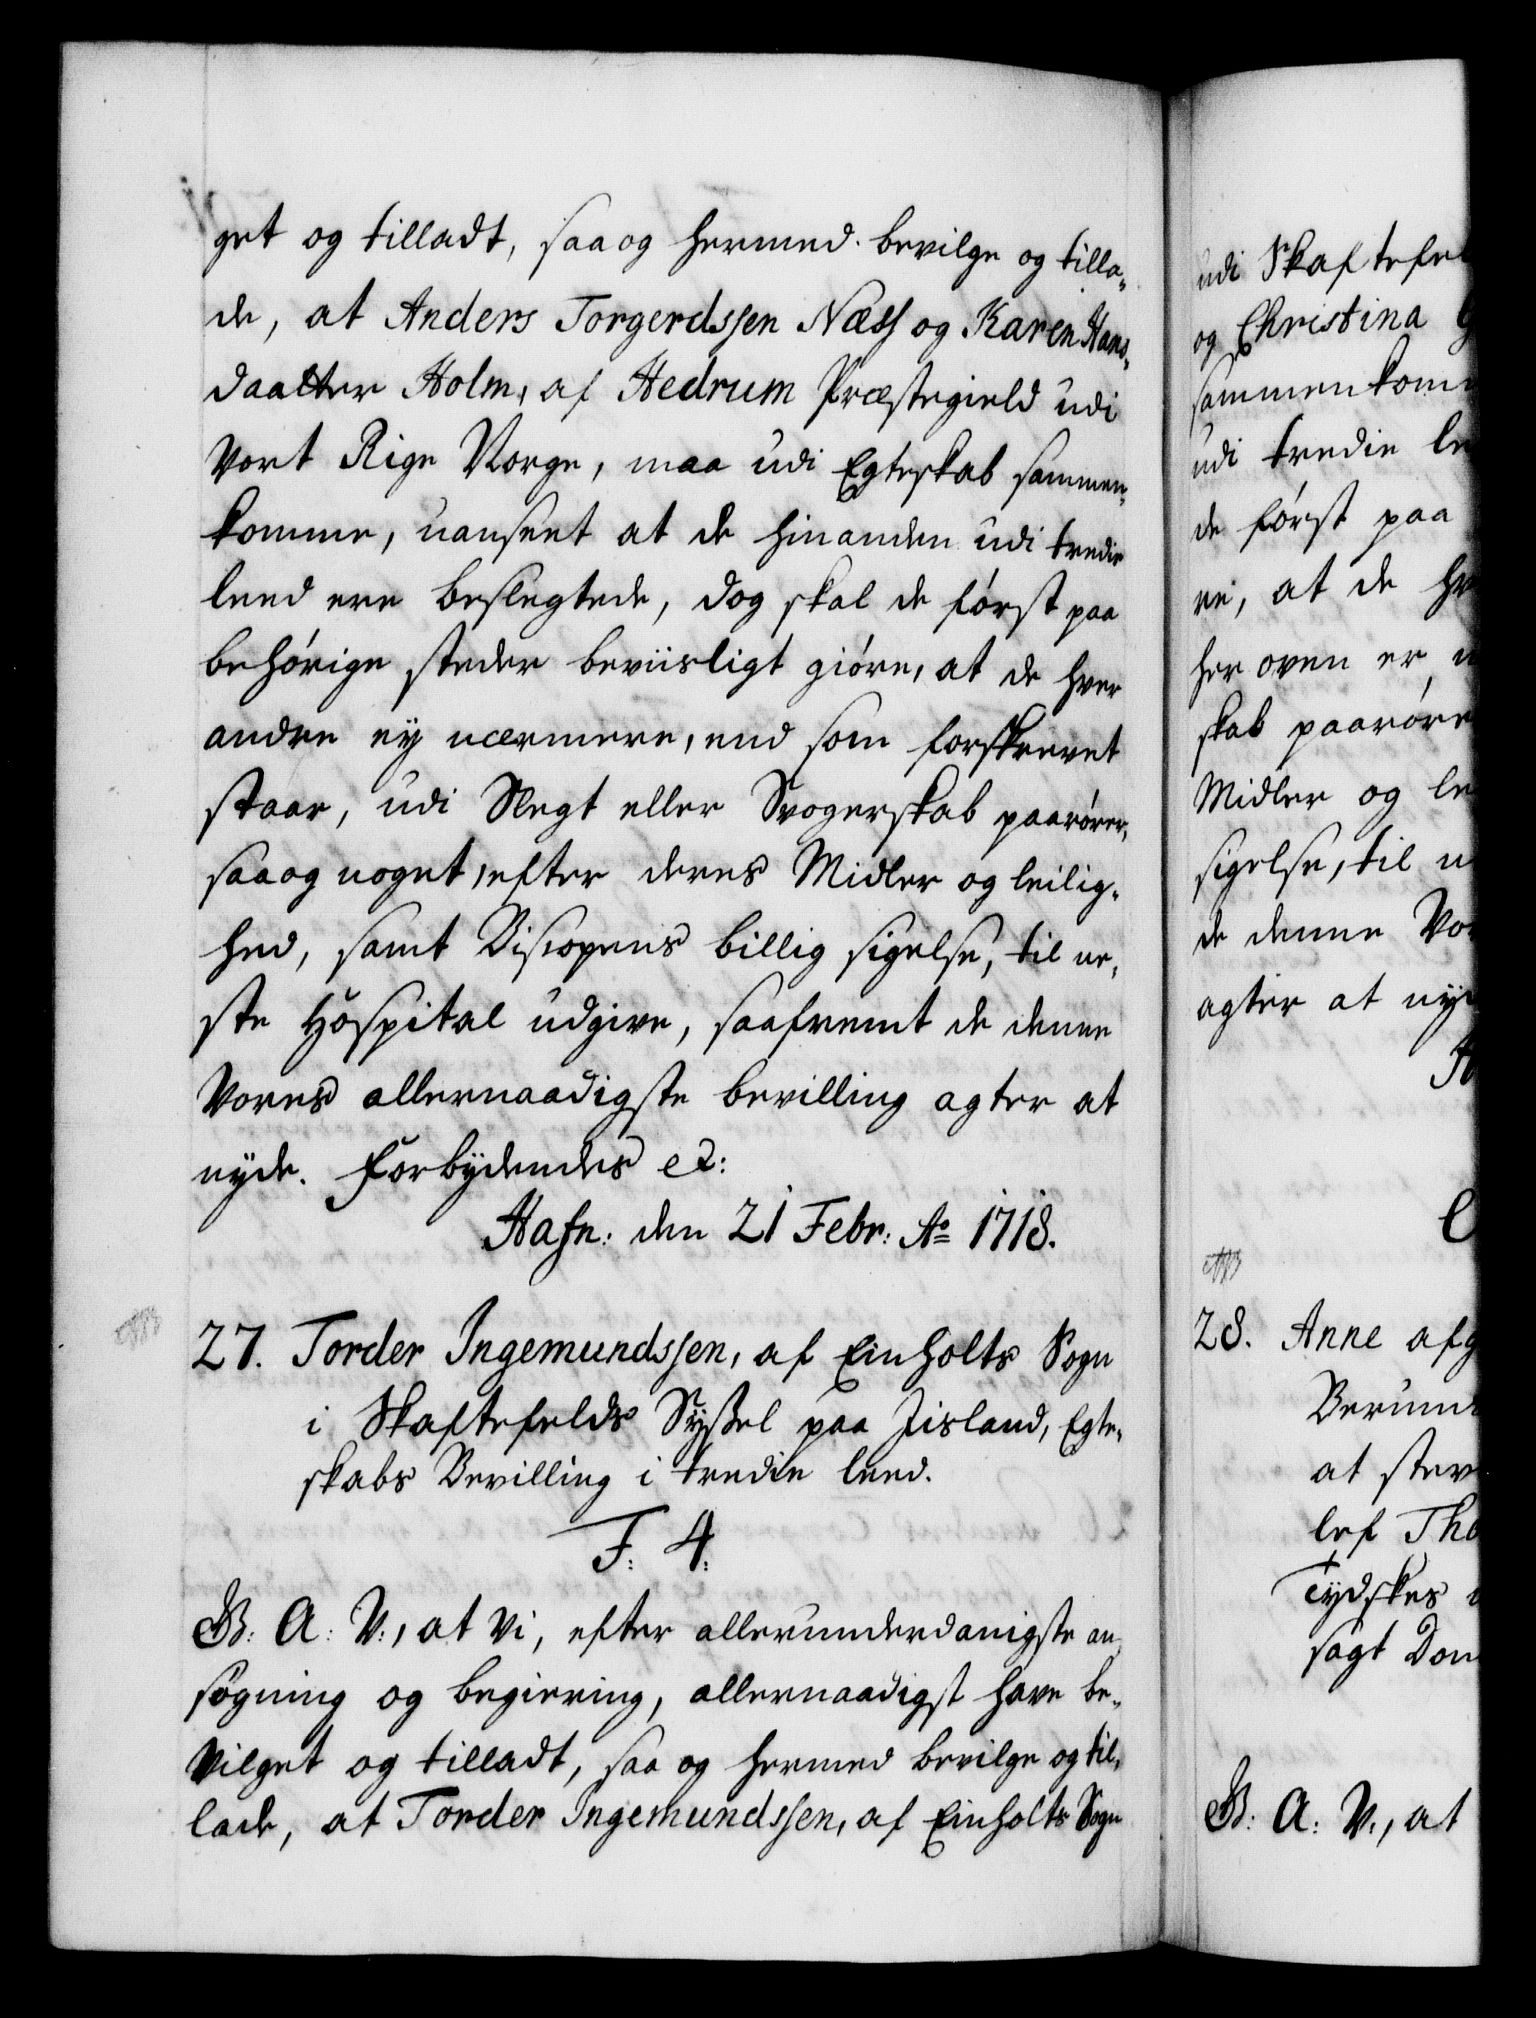 get og tilladt, saa og hermed bevilge og tilla-
de, at Anders Torgerdssen Næss og Karen Hans-
daatter Holm, af Hedrum Præstegield udi
Vort Rige Norge, maa udi Egteskab sammen-
komme, uanseet at de hinanden udi tredie
leed ere beslegtede, dog skal de først paa
behørige steder beviisligt giøre, at de hver
andre ey nærmere, end som forskrevet
staar, udi Slegt eller Svogerskab paarører,
saa og noget, efter deres Midler og leilig-
hed, samt Biscopens billig sigelse, til ne-
ste Hospital udgive, saafremt de denne
Vores allernaadigste bevilling agter at
nyde. Forbydendes etc:
Hafn: den 21 Febr: Ao 1718.
27. Torder Ingemundssen, af Einholts Sogn
i Skaftefelds Syssel paa Iisland, Egte-
skabs Bevilling i tredie leed.
F: 4.
G. B: A: V:, at Vi, efter allerunderdanigste an-
søgning og begiering, allernaadigst have be-
vilget og tilladt, saa og hermed bevilge og til-
lade, at Torder Ingemundssen, af Einholts Sogn
udi Skaftefel
og Christina
sammenkom
udi tredie le
de først paa
re, at de hv
her oven er
skab paarøre
Midler og le
sigelse, til n
de denne Vo
agter at ny
28. Anne afg
at stev
lef Tho
Tydskes
sagt Dom
B: A: V:, at